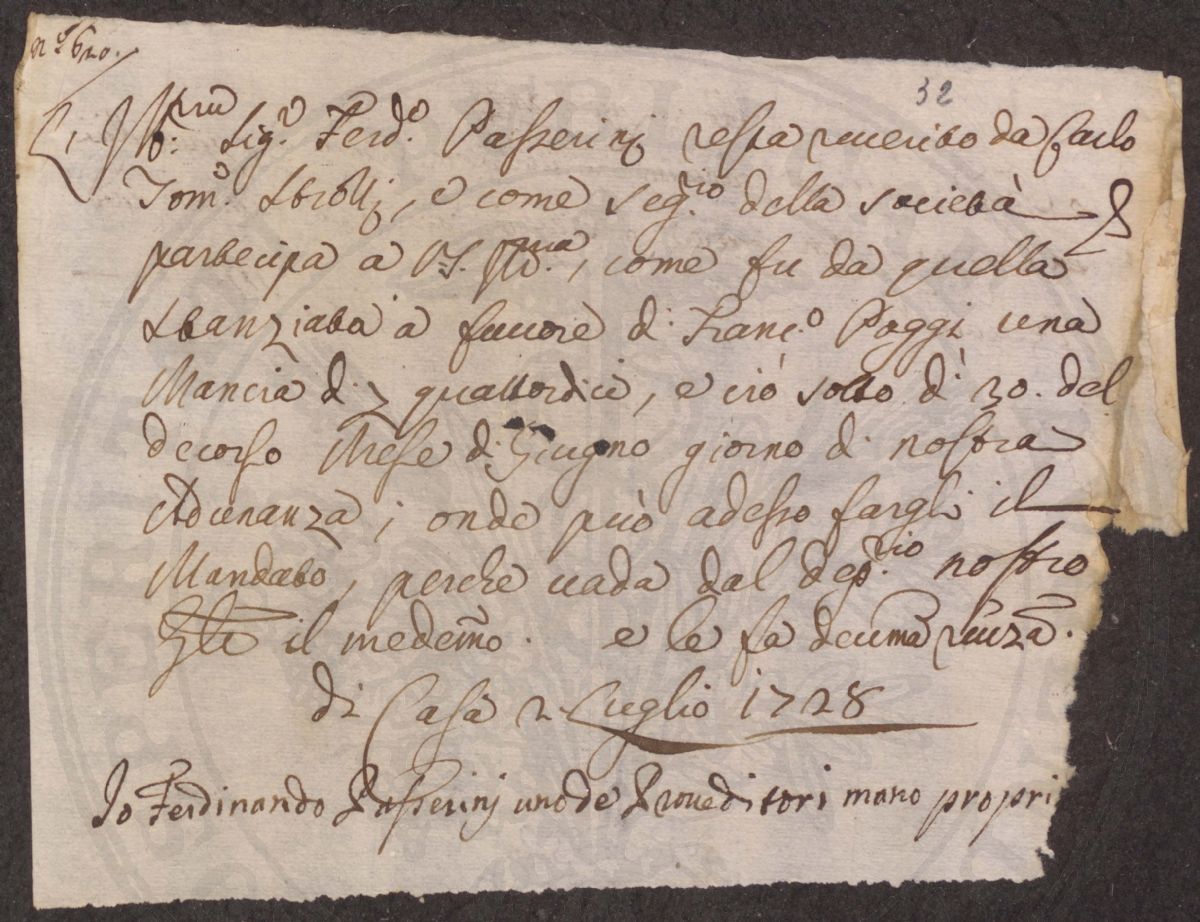 n.o 620.
32
L'Ill.mo Sig.r Ferd.o Passerinj resta riverito da Carlo
Tom.o Strozzj, e come seg.rio della società
partecipa à V.S. Ill.ma, come fu da quella
stanziata à favore di Franc.o Poggi una
Mancia di quattordici, e ciò sotto dì 20. del
decorso Mese di Giugno giorno di nostra
Adunanza; onde può adesso fargli il
Mandato, perche vada dal dep.rio nostro
il medemo. e le fa deuma riuza.
di Casa 2 Luglio 1728
Io Ferdinando Passerinj uno de Proveditori mano propri